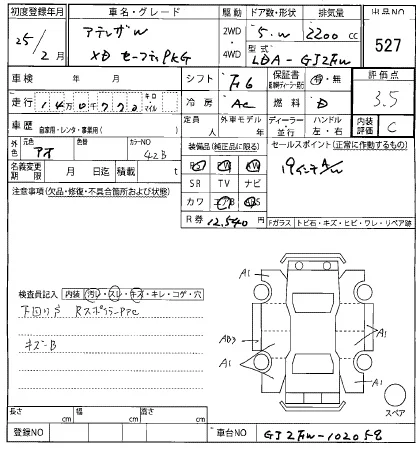 初度登録年月 車名・グレード 駆動 ドア数・形状 排気量 出品NO
25/2月 アテンザW XD セーフティPKG 2WD・4WD 5.W 2200cc 527
型式 LDA-GJ2FW
車検 年 月 シフト F6 保証書 有・無 評価点 3.5
走行 140772 キロ・マイル 冷房 AC 燃料 D
定員 人 外車モデル 年 ディーラー・並行 ハンドル 左・右 内装評価 C
車歴 自家用・レンタ・事業用( )
外色 元色 アオ 色替 カラーNO 42B
装備品(純正品に限る) セールスポイント(正常に作動するもの)
PS PW 19インチAW
名義変更期限 月 日迄 積載 t SR TV ナビ
注意事項(欠品・修復・不具合箇所および状態) カワ
R券 12,540円 Fガラス トビ石・キズ・ヒビ・ワレ・リペア跡
検査員記入 内装 汚レ・スレ・キズ・キレ・コゲ・穴
下回りサビ
キズ-B
A1
A1
A1
A1
A1
スペア
長さ cm 幅 cm 高さ cm
登録NO 車台NO GJ2FW-102058